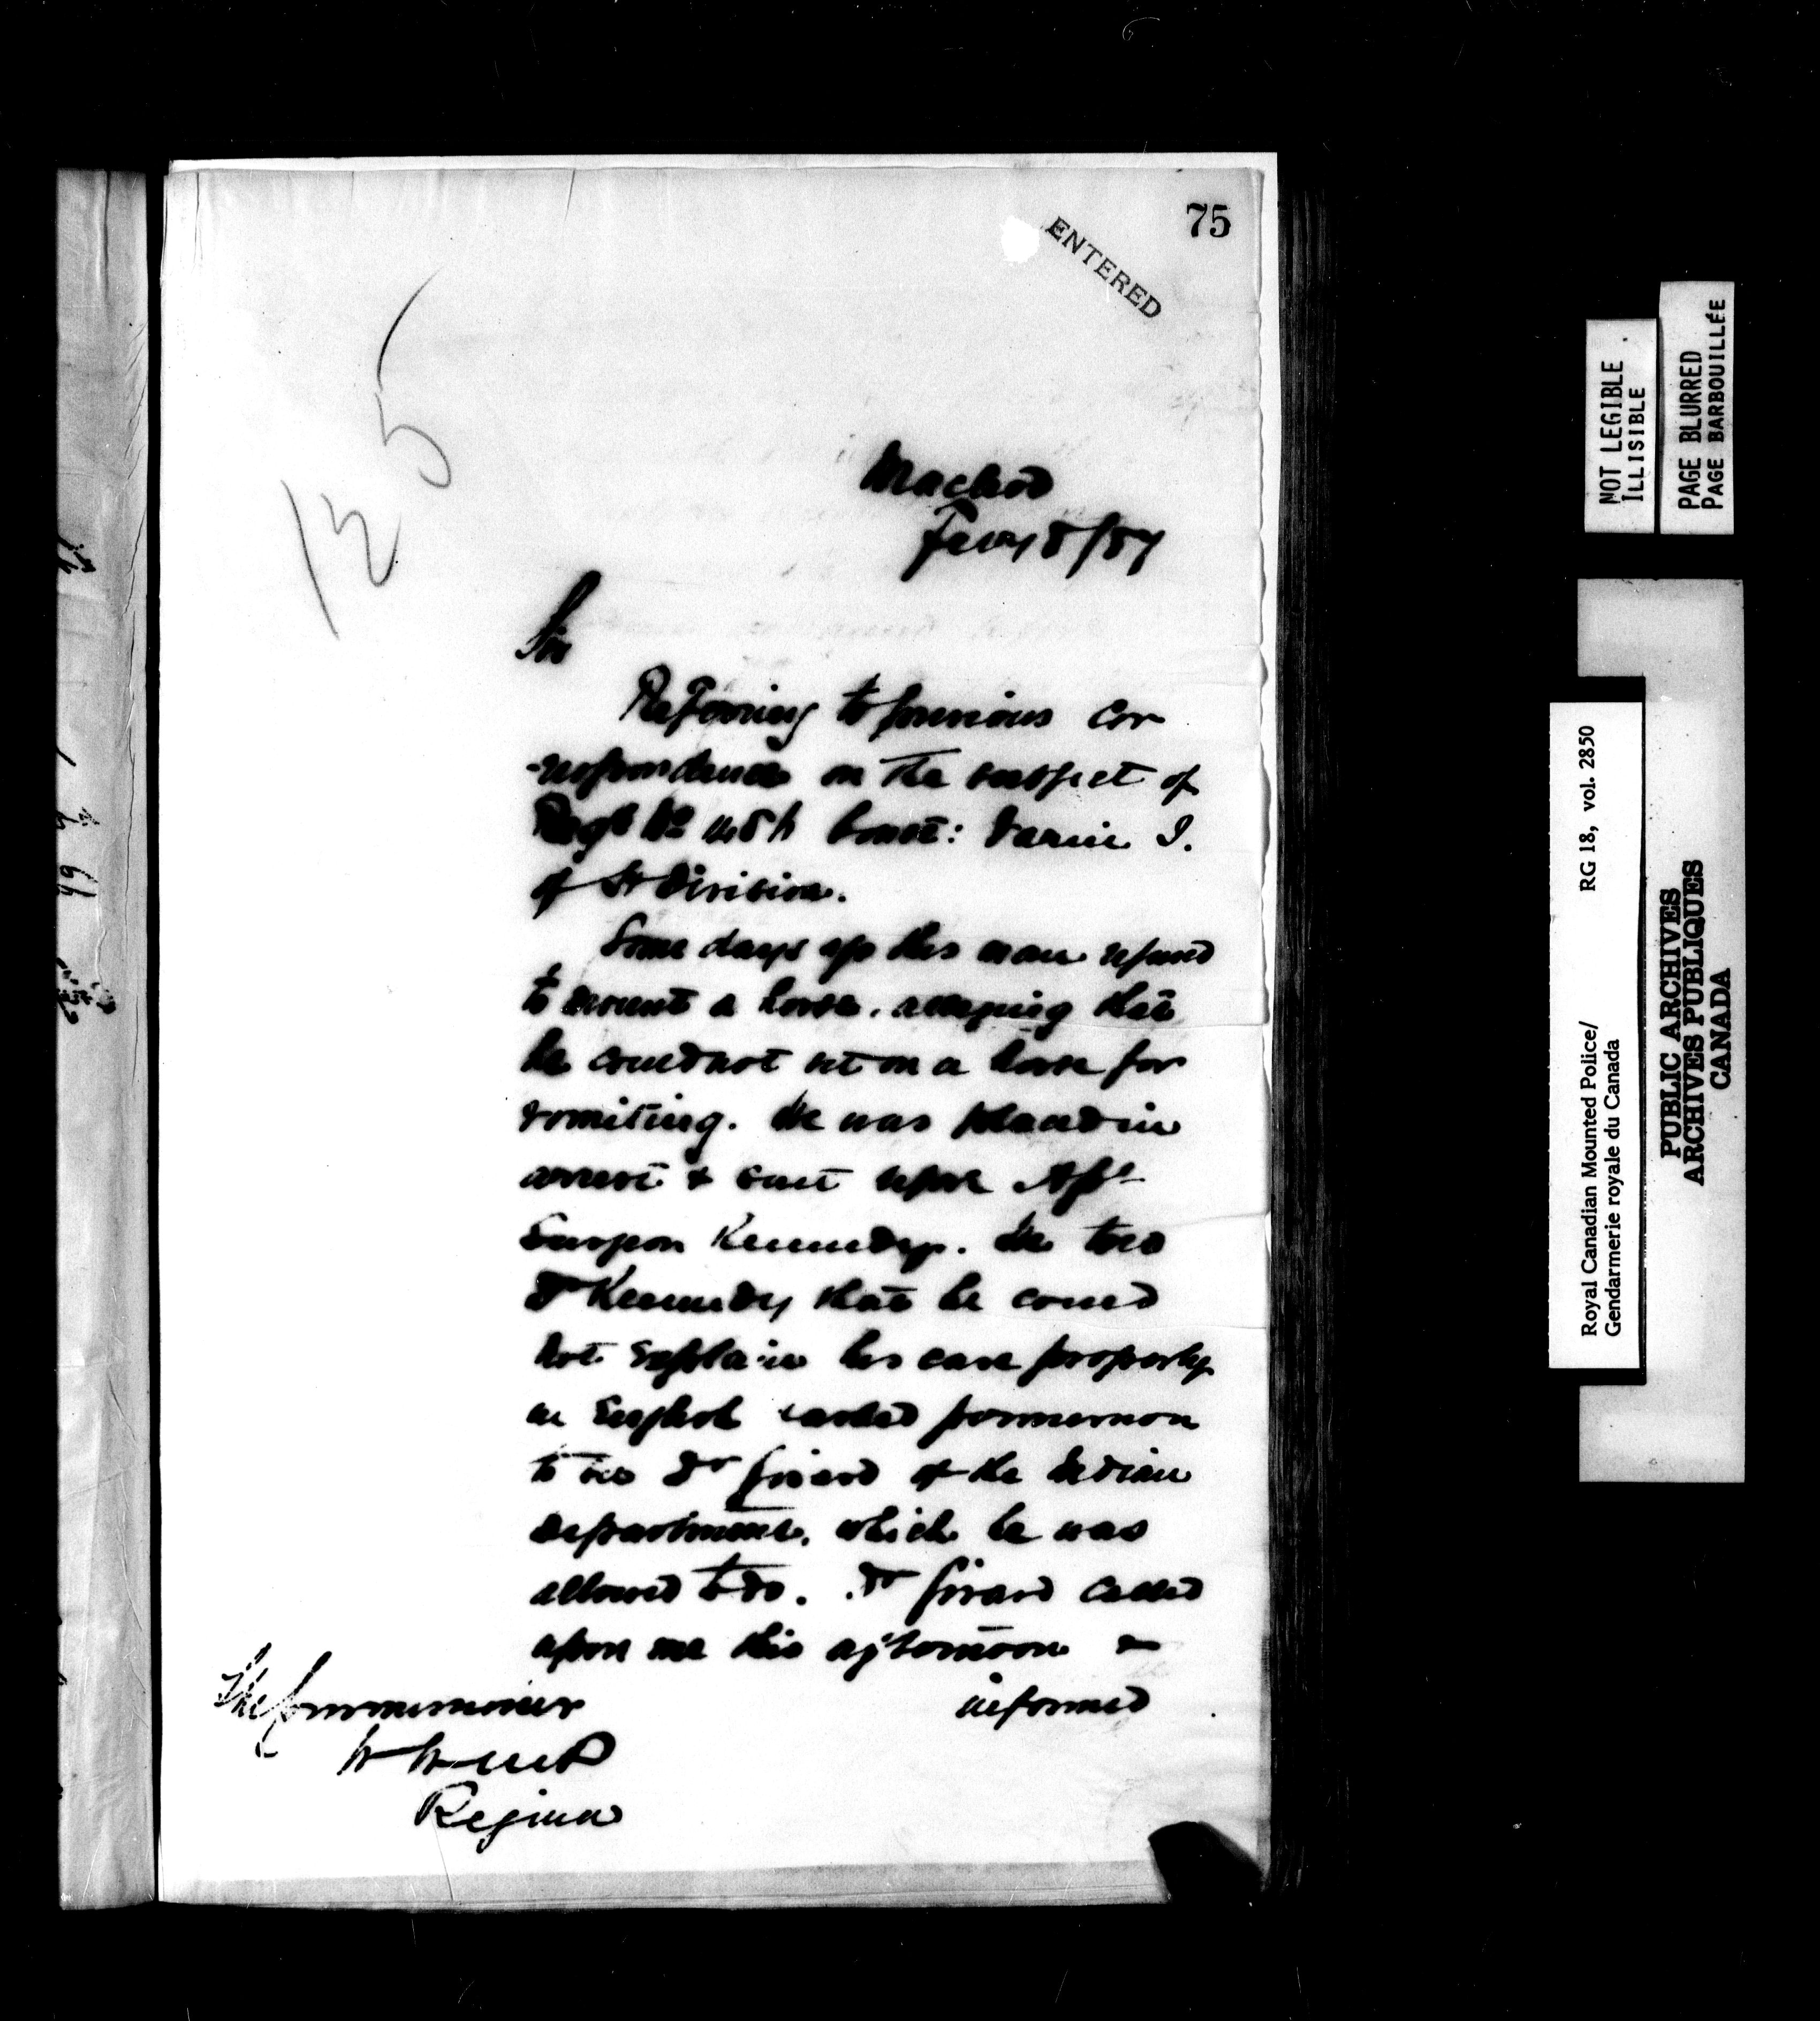 75
ENTERED
125
Macleod
Feby 8/87
Sir
Referring to previous cor
-respondence on the subject of
Regt No Const: I.
of H Division.
Some days ago this man refused
to mount a horse, alleging that
he could not sit on a horse for
vomiting. He was placed in
arrest & sent before Asst
Surgeon Kennedy. He told
Dr Kennedy that he could
not explain his case properly
in English & asked permission
to see Dr Girard of the Indian
Department, which he was
allowed to do. Dr Girard called
upon me this afternoon &
informed
The Commissioner
N W M P
Regina
NOT LEGIBLE
ILLISIBLE
PAGE BLURRED
PAGE BARBOUILLÉE
Royal Canadian Mounted Police/
Gendarmerie royale du Canada
RG 18, vol. 2850
PUBLIC ARCHIVES
ARCHIVES PUBLIQUES
CANADA